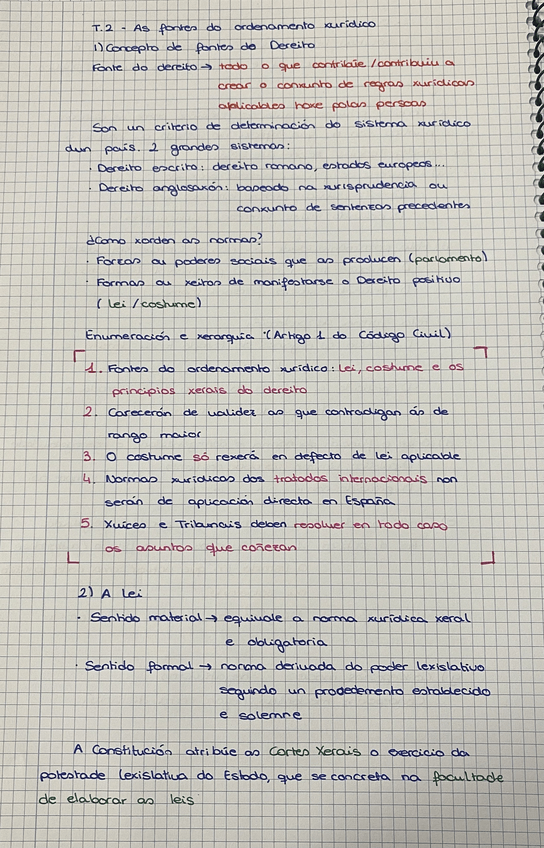 T.2 - As fontes do ordenamento xurídico
1) Concepto de fontes do Dereito
Fonte do dereito → todo o que contribúe/contribuiu a
crear o conxunto de regras xurídicas
aplicables hoxe polas persoas
Son un criterio de determinación do sistema xurídico
dun país. 2 grandes sistemas:
· Dereito escrito: dereito romano, estados europeos...
· Dereito anglosaxón: baseado na xurisprudencia ou
conxunto de sentenzas precedentes
¿Como xorden as normas?
· Forzas ou poderes sociais que as producen (parlamento)
· Formas ou xeitos de manifestarse o Dereito positivo
(lei/costume)
Enumeración e xerarquía: (Artigo 1 do Código Civil)
1. Fontes do ordenamento xurídico: Lei, costume e os
principios xerais do dereito
2. Carecerán de validez as que contradigan ás de
rango maior
3. O costume só rexerá en defecto de lei aplicable
4. Normas xurídicas dos tratados internacionais non
serán de aplicación directa en España
5. Xuíces e Tribunais deben resolver en todo caso
os asuntos que coñezan
2) A lei
· Sentido material → equivale a norma xurídica xeral
e obligatoria
· Sentido formal → norma derivada do poder lexislativo
seguindo un prodedemento establecido
e solemne
A Constitución atribúe as Cortes Xerais o exercicio da
potestade lexislativa do Estado, que se concreta na facultade
de elaborar as leis